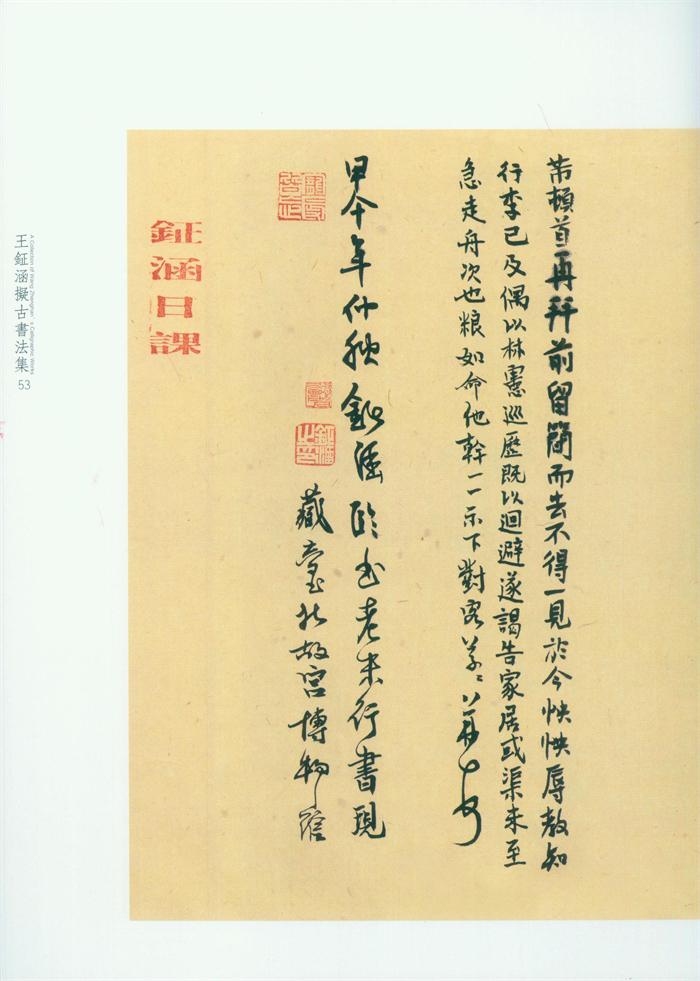 芾頓首再拜前留簡而去不得一見於今怏怏辱教知
行李已及偶以林憲巡歷既以迴避遂謁告家居或渠未至
急走舟次也粮如命他幹一一示下對客草草芾頓首
甲午年仲秋鉦涵臨書老米行書現
藏臺北故宮博物館
鉦涵之印
鉦涵日課
A Collection of Wang Zhenghan's Calligraphic Works
王鉦涵擬古書法集
53